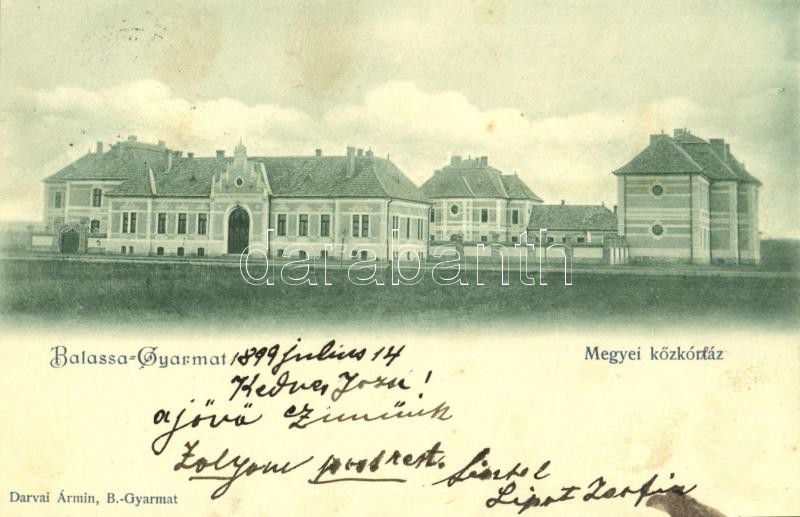 darabanth
Balassa-Gyarmat 1899 július 14
Megyei kőzkórház
Kedves Jozsi!
a jövő czimünk
Zolyom postrest.
Lipot
Darvai Ármin, B.-Gyarmat